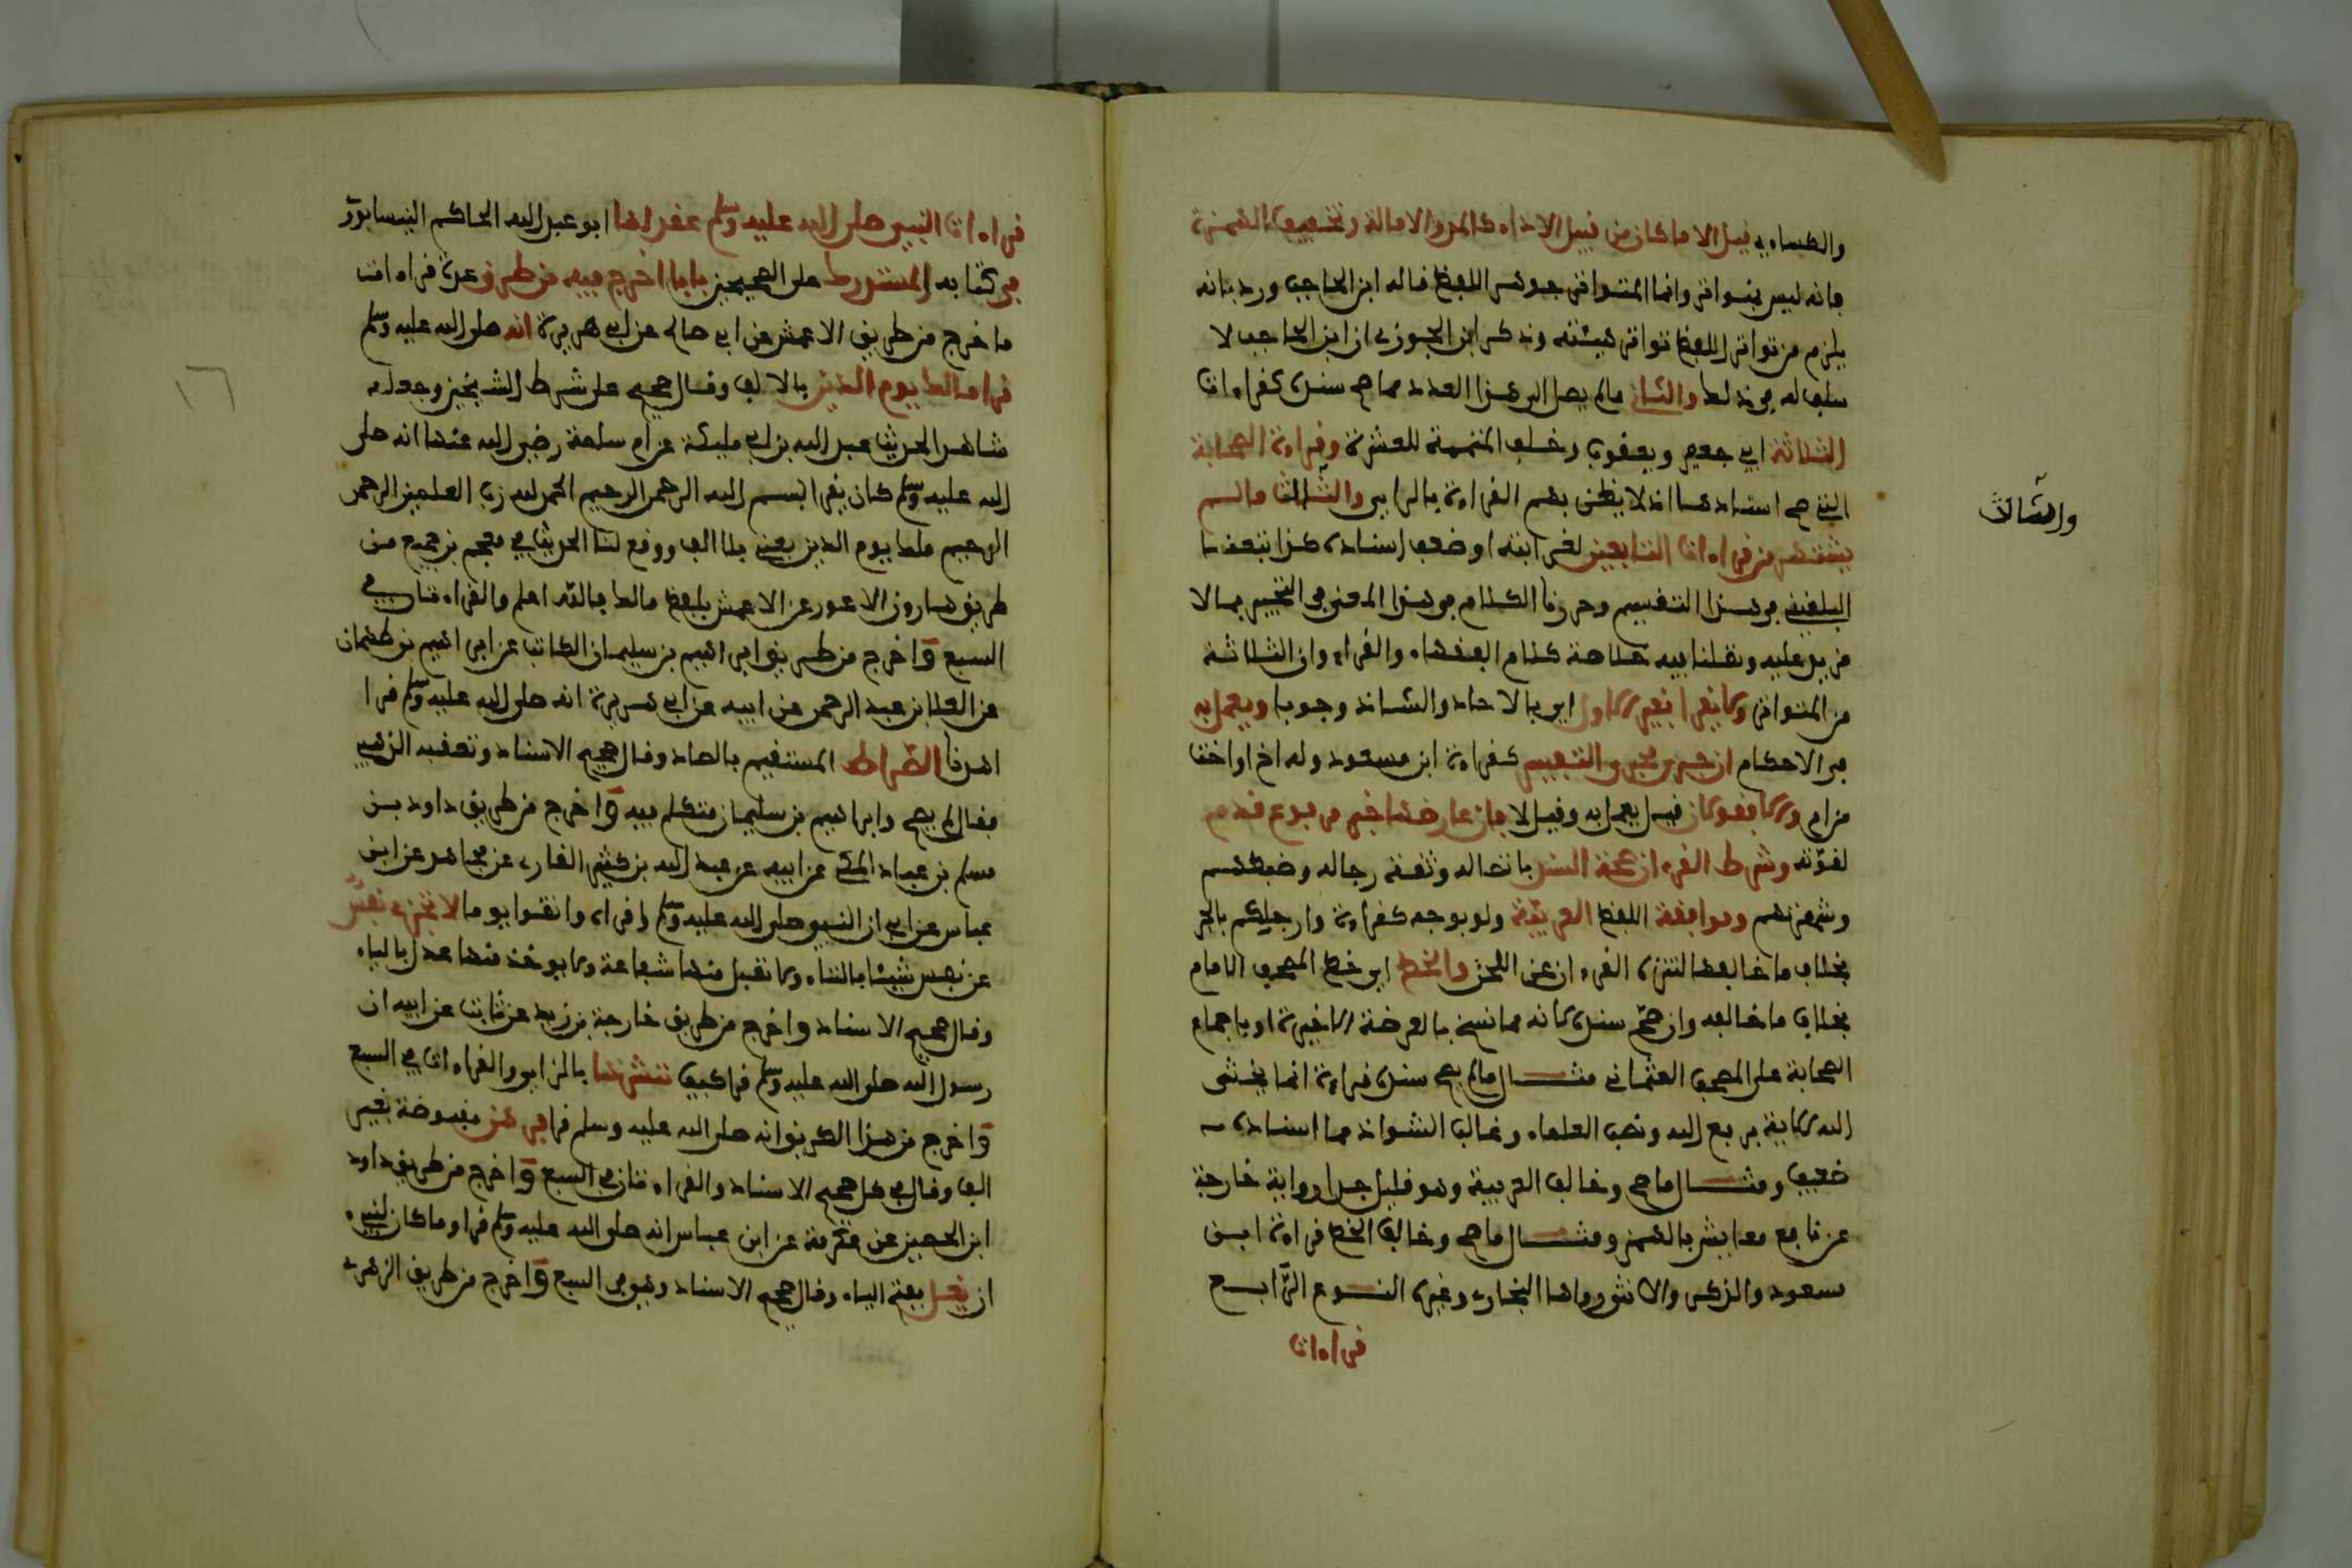 والكساءي قيل الا ما كان من قبيل الاداء كالمد والامالة وتخفيف الهمزة
فانه ليس بمتواتر وانما المتواتر جوهر اللفظ قاله ابن الحاجب ورد بانه
يلزم من تواتر اللفظ تواتر هيئته وذكر ابن الجوزي ان ابن الحاجب لا
سلف له في ذلك والثاني مالم يصل الى هذا العدد مما صح سنده كقراءات
الثلاثة ابي جعفر ويعقوب وخلف المتممة للعشرة وقراءة الصحابة
التي صح اسنادها اذ لا يظن بهم القراءة بالراي والثالث مالم
والثالث
يشتهر من قراءات التابعين لغرابته او ضعف اسناده كذا تبعنا
البلقيني في هذا التقسيم وحررنا الكلام في هذا المعنى في التحبير بما لا
مزيد عليه ونقلنا فيه خلاصة كلام الفقهاء والقراء وان الثلاثة
من المتواتر ولا يقرا بغير الاول اي بالاحاد والشاذ وجوبا ويعمل به
في الاحكام ان جرى مجرى التفسير كقراءة ابن مسعود وله اخ او اخت
من ام والا فقولان قيل يعمل به وقيل لا فان عارضها خبر مرفوع قدم
لقوته وشرط القرءان صحة السند باتصاله وثقة رجاله وضبطهم
وشهرتهم وموافقة اللفظ العربية ولو بوجه كقراءة وارجلكم بالجر
بخلاف ما خالفها لتنزه القرءان عن اللحن والخط اي خط المصحف الامام
بخلاف ما خالفه وان صح سنده لانه مما نسخ بالعرضة الاخيرة او باجماع
الصحابة على المصحف العثماني مثال مالم يصح سنده قراءة انما يخشى
الله الاية برفع الله ونصب العلماء وغالب الشواذ مما اسناده
ضعيف ومثال ما صح وخالف العربية وهو قليل جدا رواية خارجة
عن نافع معايش بالهمز ومثال ما صح وخالف الخط قراءة ابن
سعود والذكر والانثى رواها البخاري وغيره النوع الرابع
قراءات
قراءات النبي صلى الله عليه وسلم عقد لها ابو عبد الله الحاكم النيسابوري
في كتابه المستدرك على الصحيحين بابا اخرج فيه من طرق عدة قراءات
ما خرج من طريق الاعمش عن ابي صالح عن ابي هريرة انه صلى الله عليه وسلم
١٦
قرا مالك يوم الدين بالالف وقال صحيح على شرط الشيخين وجعل له
شاهدا حديث عبد الله بن ابي مليكة عن ام سلمة رضي الله عنها انه صلى
الله عليه وسلم كان يقرا بسم الله الرحمن الرحيم الحمد لله رب العلمين الرحمن
الرحيم ملك يوم الدين يعني بلا الف ووقع لنا الحديث في معجم بن جميع من
طريق هارون الاعور عن الاعمش بلفظ مالك فالله اعلم والقراءتان في
السبع واخرج من طريق ابراهيم بن سليمان الكاتب عن ابراهيم بن طهمان
عن العلا بن عبد الرحمن عن ابيه عن ابي هريرة انه صلى الله عليه وسلم قرا
اهدنا الصراط المستقيم بالصاد وقال صحيح الاسناد وتعقبه الذهبي
فقال لم يصح وابراهيم بن سليمان متكلم فيه واخرج من طريق داود بن
مسلم بن عباد المكي عن ابيه عن عبد الله بن كثير القارى عن مجاهد عن ابن
عباس عن ابي ان النبي صلى الله عليه وسلم اقراه واتقوا يوما لا تجزي نفس
عن نفس شيئا بالتاء ولا تقبل منها شفاعة ولا يوخذ منها عدل بالياء
وقال صحيح الاسناد واخرج من طريق خارجة بن زيد عن ثابت عن ابيه ان
رسول الله صلى الله عليه وسلم قرا كيف ننشزها بالزاي والقراءات في السبع
واخرج من هذا الطريق انه صلى الله عليه وسلم قرا فرهن مقبوضة بغير
الف وقال في كل صحيح الاسناد والقراءتان في السبع واخرج من طريق داود
ابن الحصين عن عكرمة عن ابن عباس انه صلى الله عليه وسلم قرا وما كان لنبيء
ان يغل بفتح الياء وقال صحيح الاسناد وهي في السبع واخرج من طريق الزهري